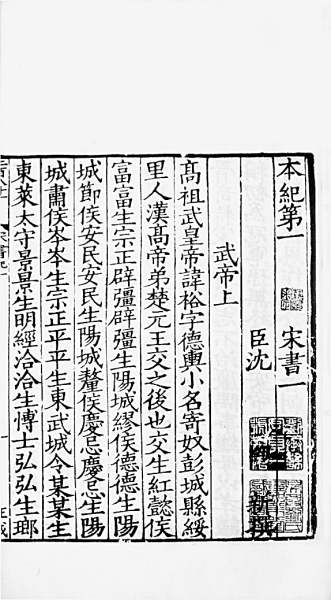 本紀第一　宋書一
臣沈　約　新撰
武帝上
高祖武皇帝諱裕字德輿小名寄奴彭城縣綏
里人漢高帝弟楚元王交之後也交生紅懿侯
富富生宗正辟彊辟彊生陽城繆侯德德生陽
城節侯安民安民生陽城釐侯慶忌慶忌生陽
城肅侯岑岑生宗正平平生東武城令某某生
東萊太守景景生明經洽洽生博士弘弘生瑯